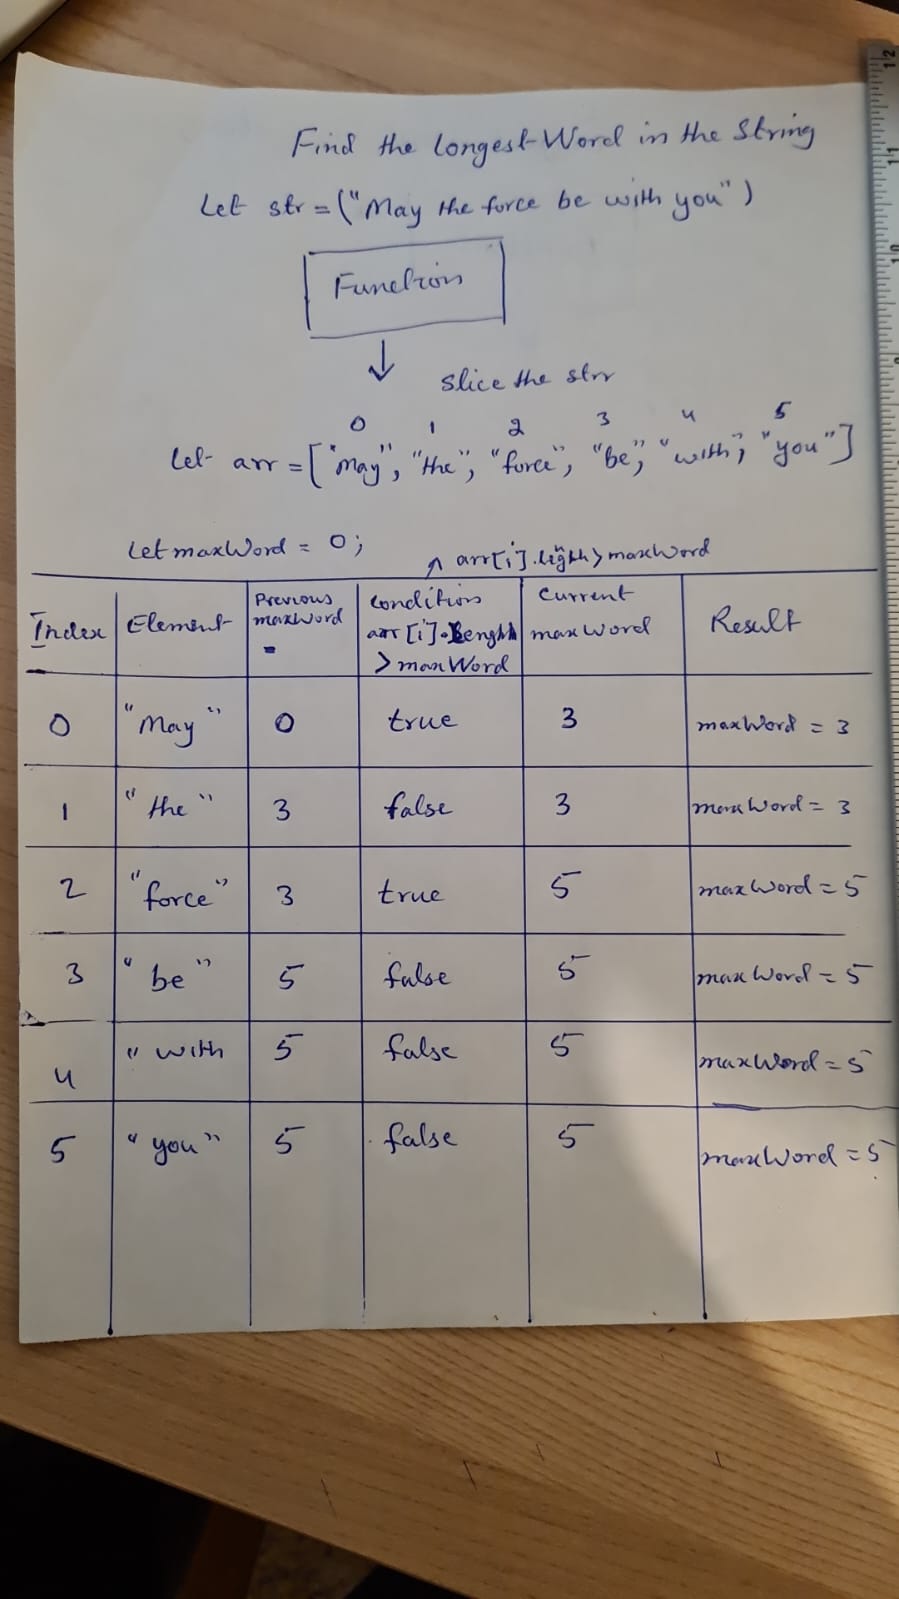 Find the Longest Word in the String
Let str = ("May the force be with you")
Function
↓
slice the strr
0 1 2 3 4 5
Let arr = ["may", "the", "force", "be", "with", "you"]
Let maxWord = 0;
^ arr[i].ligth > maxWord
Index | Element | Previous maxWord | Condition arr[i].Lenghth > maxWord | Current maxWord | Result
0 | "May" | 0 | true | 3 | maxWord = 3
1 | "the" | 3 | false | 3 | maxWord = 3
2 | "force" | 3 | true | 5 | maxWord = 5
3 | "be" | 5 | false | 5 | maxWord = 5
4 | "with | 5 | false | 5 | maxWord = 5
5 | "you" | 5 | false | 5 | maxWord = 5
12
11
10